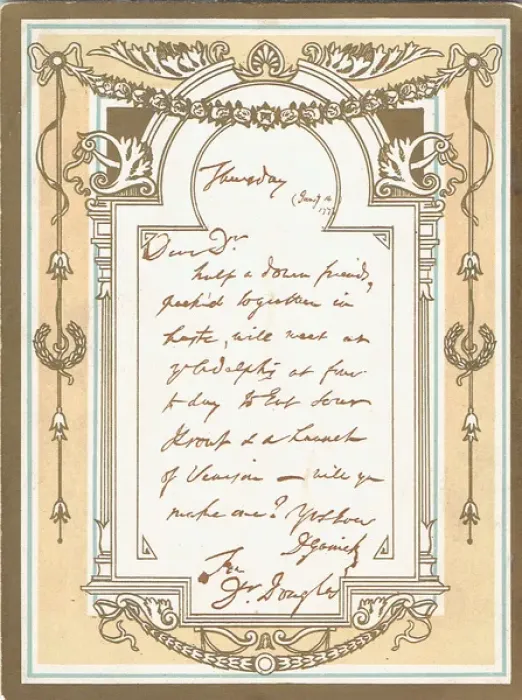 Thursday
(Jany 14
177
Dear Dr.
half a dozen friends,
pick'd together in
haste, will meet at
ye Adelphi at four
to day to Eat Sour
Krout & a Haunch
of Venison — will you
make one?
D Garrick
For
Dr. Douglas